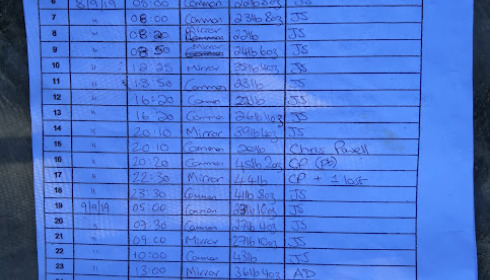 6 8/9/19 06:00 Common JS
7 " 08:00 Common 23lb 8oz JS
8 " 08:20 Mirror 22lb JS
9 " 08:50 Mirror 24lb 6oz JS
10 " 12:25 Mirror 4oz JS
11 " 13:50 Common 23lb JS
12 " 16:20 Common 22lb JS
13 " 16:20 Common 26lb 10oz JS
14 " 20:10 Mirror 39lb 4oz JS
15 " 20:10 Common 20lb Chris Powell
16 " 20:20 Common 45lb 2oz CP (Pb)
17 " 22:30 Mirror 44lb CP + 1 lost
18 " 23:30 Common 41lb 8oz JS
19 9/9/19 05:00 Common 10oz JS
20 " 07:30 Common 27lb 4oz JS
21 " 09:00 Mirror 27lb 10oz JS
22 " 10:00 Common 43lb JS
23 " 13:00 Mirror 36lb 4oz AD